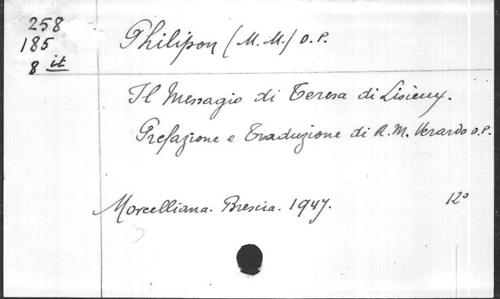 258
185
8 it
Philipon (M. M.) O.P.
Il Messagio di Teresa di Lisieux.
Prefazione e Traduzione di R. M. Verardo O.P.
Morcelliana. Brescia. 1947. 12°